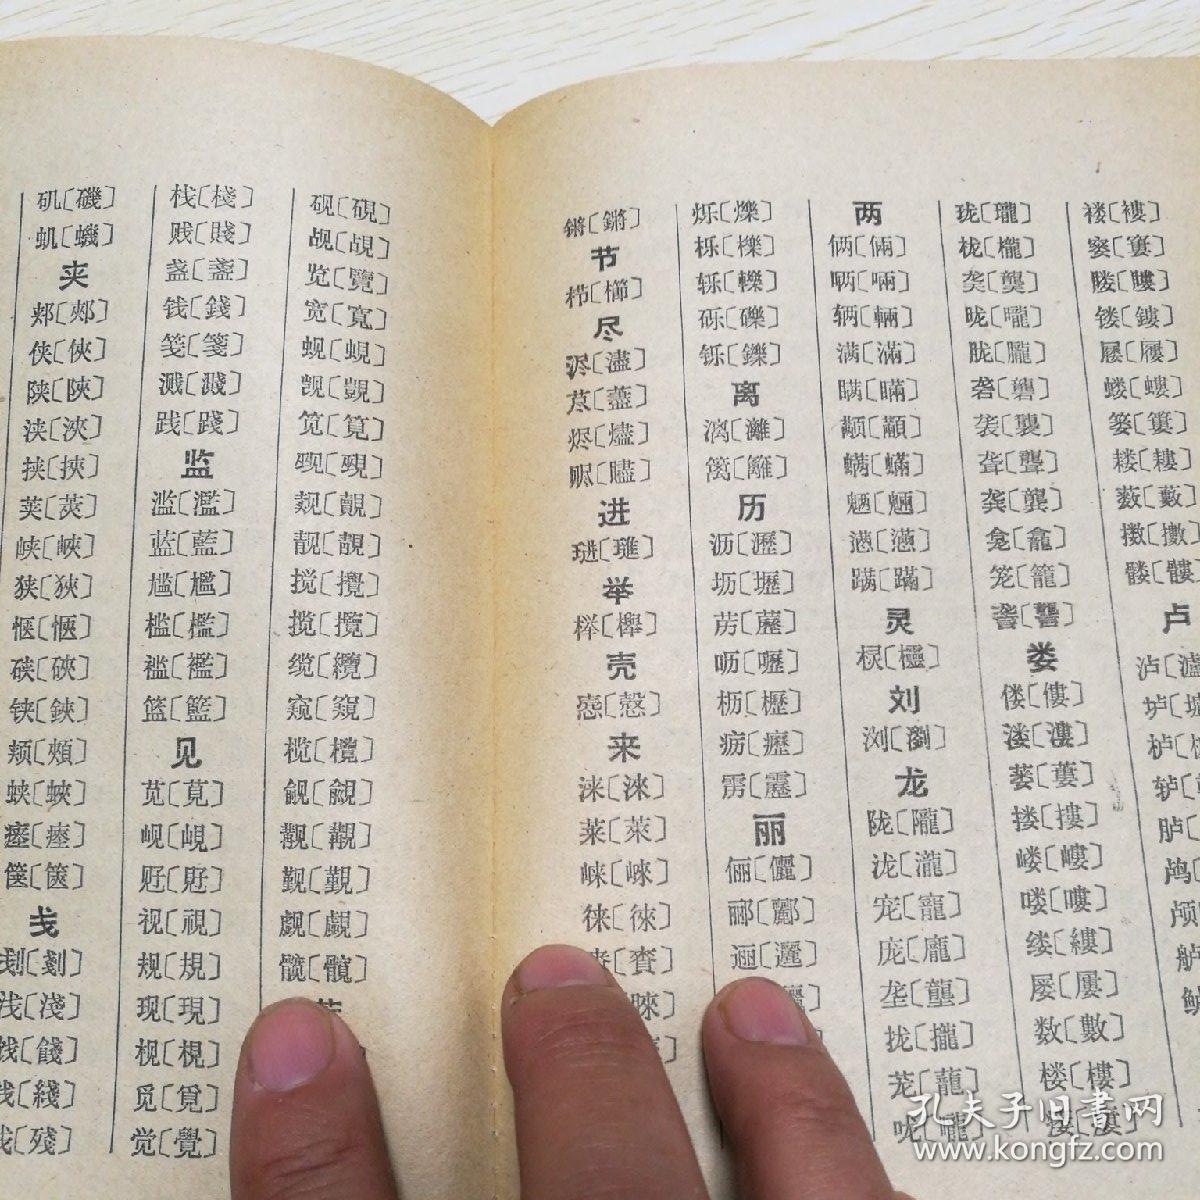 矶〔磯〕
虮〔蟣〕
夹
郏〔郟〕
侠〔俠〕
陕〔陝〕
浃〔浹〕
挟〔挾〕
荚〔莢〕
峡〔峽〕
狭〔狹〕
惬〔愜〕
硖〔硤〕
铗〔鋏〕
颊〔頰〕
蛱〔蛺〕
瘗〔瘞〕
箧〔篋〕
戋
刬〔剗〕
浅〔淺〕
饯〔餞〕
线〔綫〕
残〔殘〕
栈〔棧〕
贱〔賤〕
盏〔盞〕
钱〔錢〕
笺〔箋〕
溅〔濺〕
践〔踐〕
监
滥〔濫〕
蓝〔藍〕
尴〔尷〕
槛〔檻〕
褴〔襤〕
篮〔籃〕
见
苋〔莧〕
岘〔峴〕
觃〔覎〕
视〔視〕
规〔規〕
现〔現〕
枧〔梘〕
觅〔覓〕
觉〔覺〕
砚〔硯〕
觇〔覘〕
览〔覽〕
宽〔寬〕
蚬〔蜆〕
觊〔覬〕
笕〔筧〕
觋〔覡〕
觌〔覿〕
靓〔靚〕
搅〔攪〕
揽〔攬〕
缆〔纜〕
窥〔窺〕
榄〔欖〕
觎〔覦〕
觏〔覯〕
觐〔覲〕
觑〔覷〕
髋〔髖〕
锵〔鏘〕
节
栉〔櫛〕
尽
浕〔濜〕
荩〔藎〕
烬〔燼〕
赆〔贐〕
进
琎〔璡〕
举
榉〔櫸〕
壳
悫〔愨〕
来
涞〔淶〕
莱〔萊〕
崃〔崍〕
徕〔徠〕
赉〔賚〕
〔睞〕
烁〔爍〕
栎〔櫟〕
轹〔轢〕
砾〔礫〕
铄〔鑠〕
离
漓〔灕〕
篱〔籬〕
历
沥〔瀝〕
坜〔壢〕
苈〔藶〕
呖〔嚦〕
枥〔櫪〕
疬〔癧〕
雳〔靂〕
丽
俪〔儷〕
郦〔酈〕
逦〔邐〕
两
俩〔倆〕
唡〔啢〕
辆〔輛〕
满〔滿〕
瞒〔瞞〕
颟〔顢〕
螨〔蟎〕
魉〔魎〕
懑〔懣〕
蹒〔蹣〕
灵
棂〔欞〕
刘
浏〔瀏〕
龙
陇〔隴〕
泷〔瀧〕
宠〔寵〕
庞〔龐〕
垄〔壟〕
拢〔攏〕
茏〔蘢〕
咙〔嚨〕
珑〔瓏〕
栊〔櫳〕
龑〔龑〕
昽〔曨〕
胧〔朧〕
砻〔礱〕
袭〔襲〕
聋〔聾〕
龚〔龔〕
龛〔龕〕
笼〔籠〕
詟〔讋〕
娄
偻〔僂〕
溇〔漊〕
蒌〔蔞〕
搂〔摟〕
嵝〔嶁〕
喽〔嘍〕
缕〔縷〕
屡〔屢〕
数〔數〕
楼〔樓〕
褛〔褸〕
窭〔窶〕
䁖〔瞜〕
镂〔鏤〕
屦〔屨〕
蝼〔螻〕
篓〔簍〕
耧〔耬〕
薮〔藪〕
擞〔擻〕
髅〔髏〕
卢
泸〔瀘
垆〔壚
栌〔
轳〔
胪〔
鸬〔
颅〔
舻〔
孔夫子旧書网
www.kongfz.com